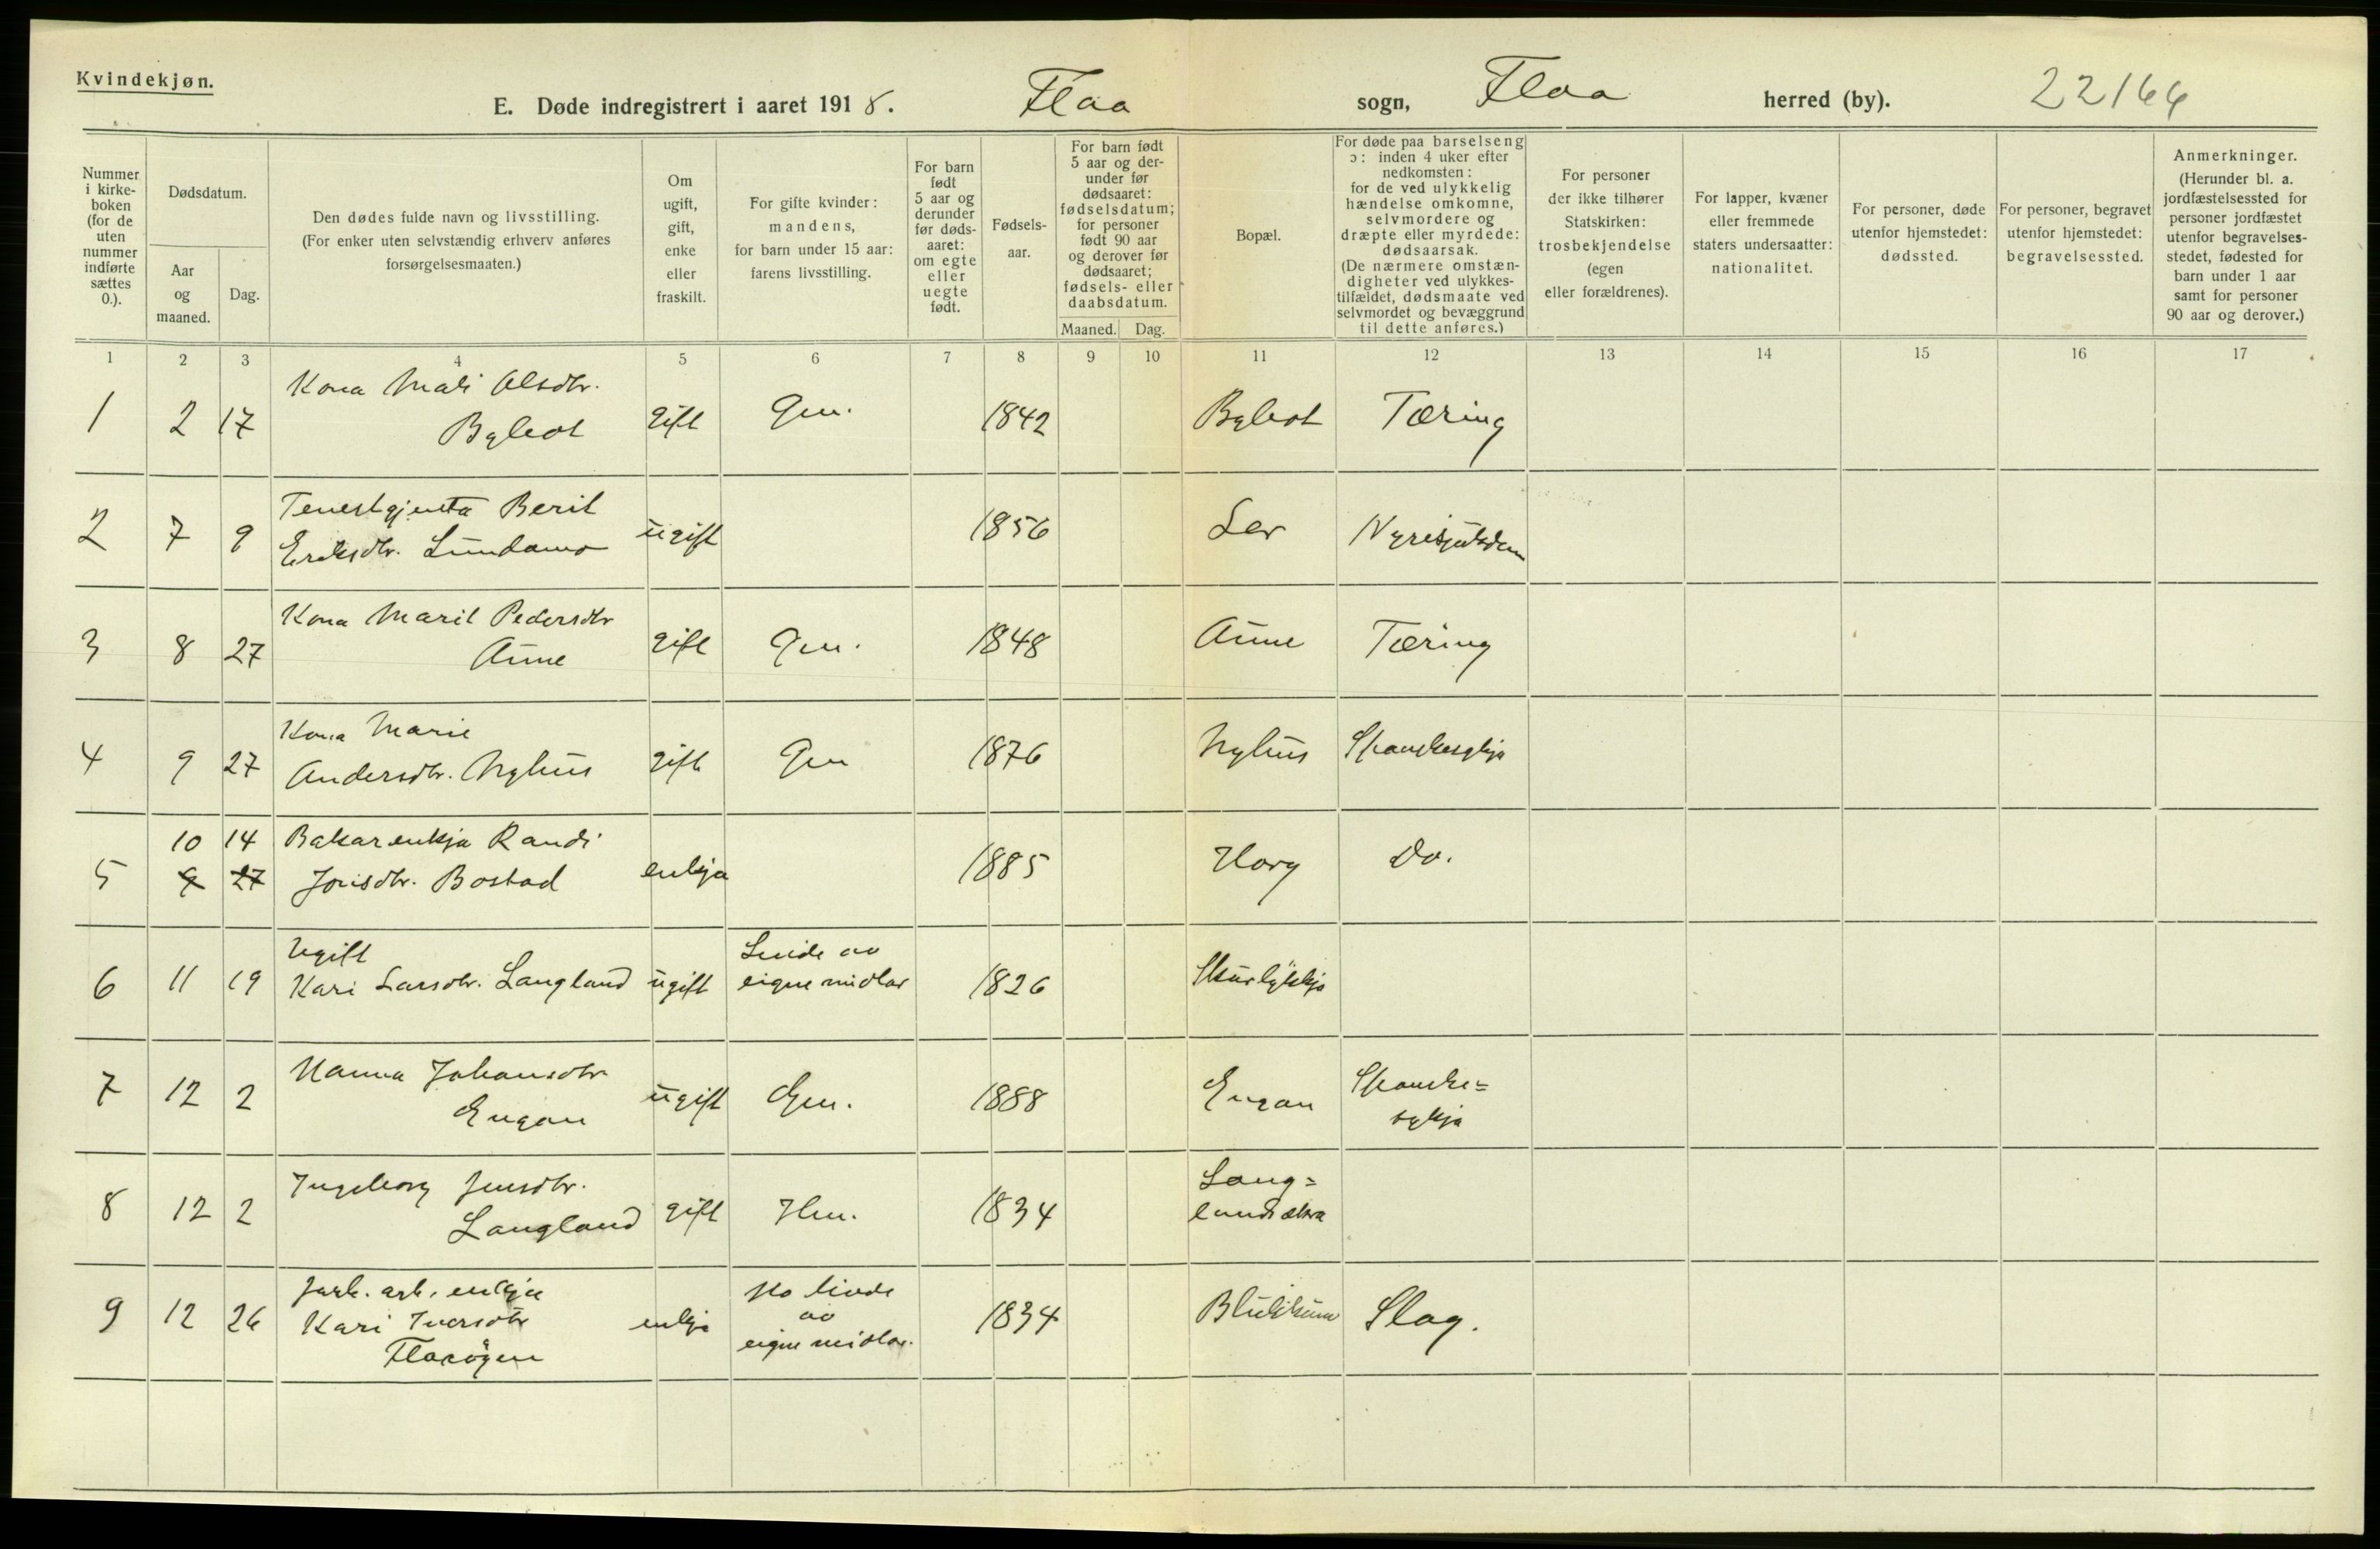 Kvindekjøn.
E. Døde indregistrert i aaret 1918. Flaa sogn, Flaa herred (by). 22/66
Nummer i kirke-boken (for de uten nummer indførte sættes 0.).
Dødsdatum.
Aar og maaned.
Dag.
Den dødes fulde navn og livsstilling.
(For enker uten selvstændig erhverv anføres
forsørgelsesmaaten.)
Om ugift, gift, enke eller fraskilt.
For gifte kvinder: mandens, for barn under 15 aar: farens livsstilling.
For barn født 5 aar og derunder før døds-aaret: om egte eller uegte født.
Fødsels-aar.
For barn født 5 aar og der-under før dødsaaret: fødselsdatum; for personer født 90 aar og derover før dødsaaret; fødsels- eller daabsdatum.
Maaned. Dag.
Bopæl.
For døde paa barselseng ɔ: inden 4 uker efter nedkomsten: for de ved ulykkelig hændelse omkomne, selvmordere og dræpte eller myrdede: dødsaarsak. (De nærmere omstæn-digheter ved ulykkes-tilfældet, dødsmaate ved selvmordet og bevæggrund til dette anføres.)
For personer der ikke tilhører Statskirken: trosbekjendelse (egen eller forældrenes).
For lapper, kvæner eller fremmede staters undersaatter: nationalitet.
For personer, døde utenfor hjemstedet: dødssted.
For personer, begravet utenfor hjemstedet: begravelsessted.
Anmerkninger. (Herunder bl. a. jordfæstelsessted for personer jordfæstet utenfor begravelses-stedet, fødested for barn under 1 aar samt for personer 90 aar og derover.)
1 2 3 4 5 6 7 8 9 10 11 12 13 14 15 16 17
Kona Mali Olsdtr.
1 2 17 Bybrot gift Gm. 1842 Bybrot Tæring
Tenestgjenta Berit
2 7 9 Eriksdtr. Lundamo ugift 1856 Ler
Kona Marit Pedersdtr
3 8 27 Aune gift Gm. 1848 Aune Tæring
Kona Marie
4 9 27 Andersdtr. Nyhus gift Gm 1876 Nyhus Spanskesykja
10 14 Bakarenkja Randi
5 9 27 Jonsdtr. Bostad enkja 1885 Horg Do.
Ugift Livde av
6 11 19 Kari Larsdtr. Langland ugift eigne midlar 1826
Hanna Johansdtr Spanske=
7 12 2 Engan ugift Gm. 1888 Engan sykja
Ingeborg Jensdtr. Lang=
8 12 2 Langland gift Hm. 1834 landsætra
Jarb. arb. enkja Ho livde
9 12 26 Kari Iversdtr enkja av 1834 Slag.
Flaaöyen eigne midlar.